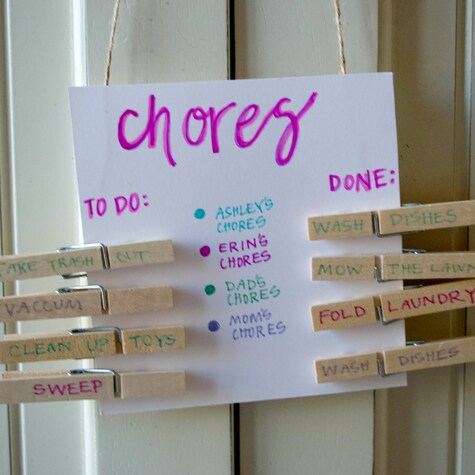 chores
TO DO:
DONE:
ASHLEY'S
CHORES
ERIN'S
CHORES
DAD'S
CHORES
MOM'S
CHORES
TAKE TRASH OUT
VACCUM
CLEAN UP TOYS
SWEEP
WASH DISHES
MOW THE LAWN
FOLD LAUNDRY
WASH DISHES